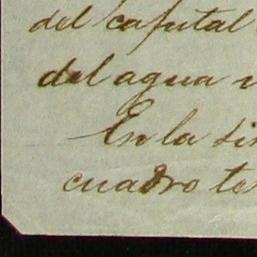 del capital
del agua
En la sin
cuadro te